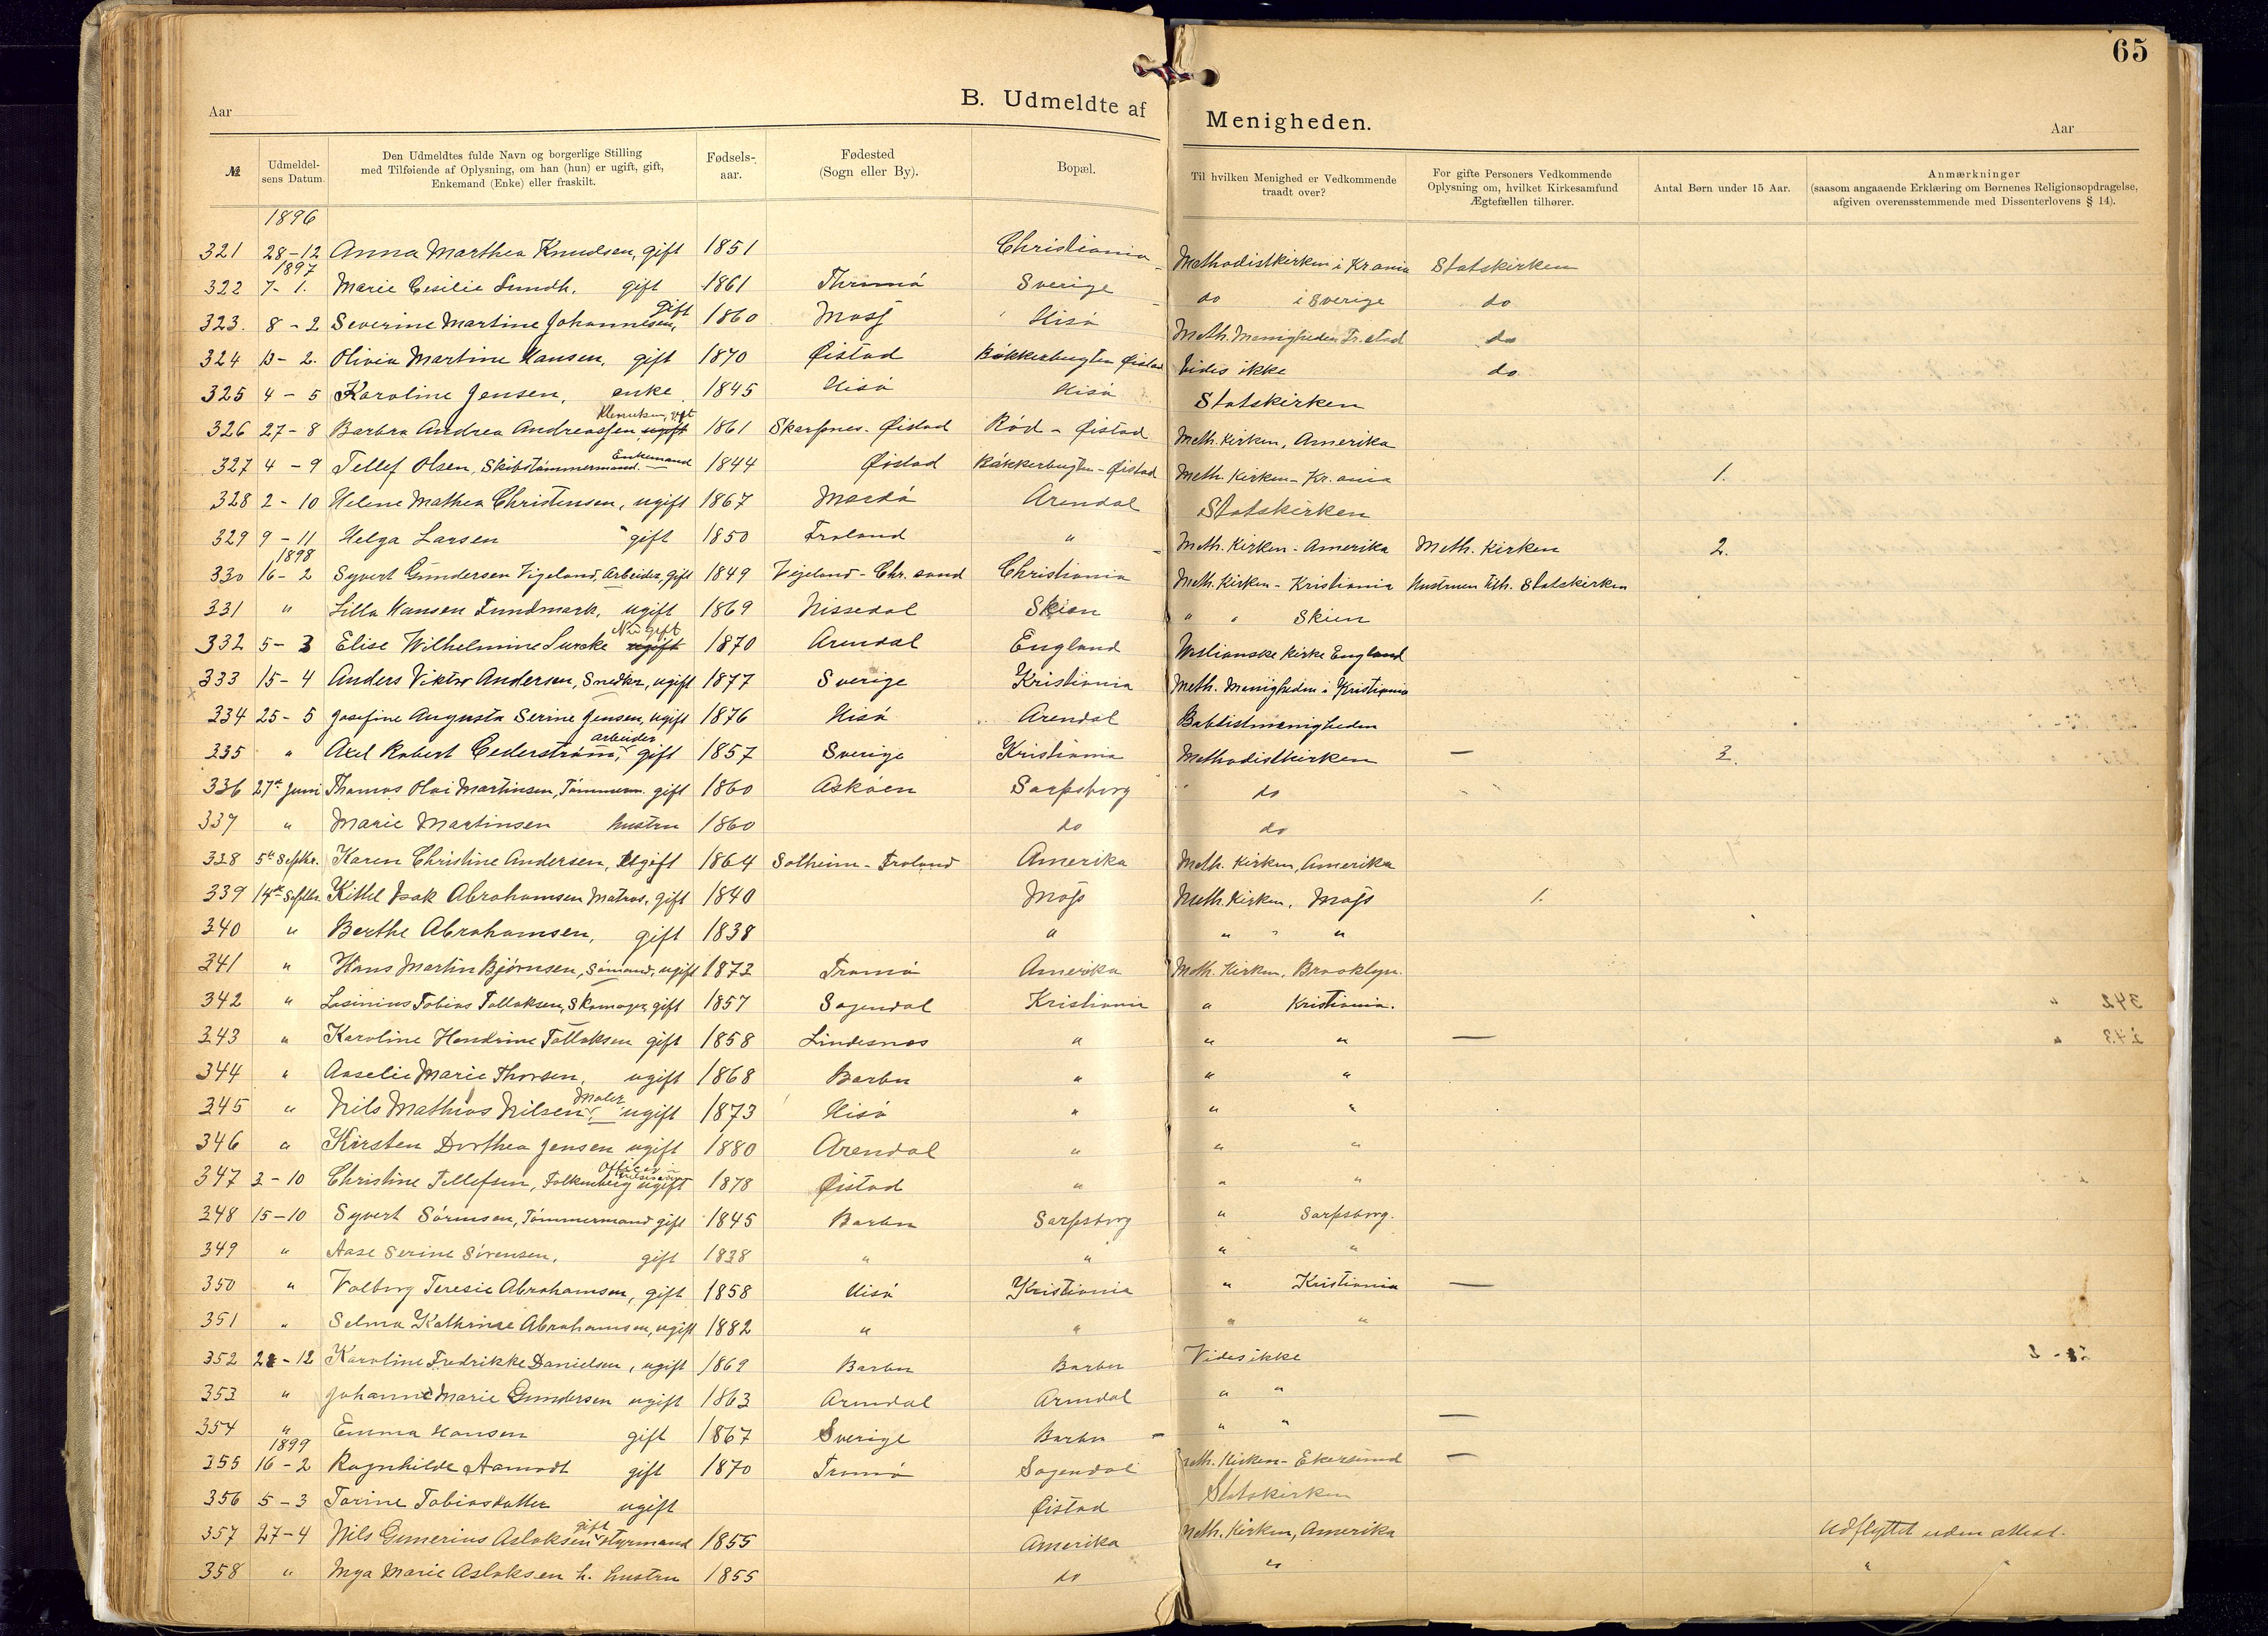 65
B. Udmeldte af Menigheden.
Aar
Aar
№
Udmeldelsens Datum.
Den Udmeldtes fulde Navn og borgerlige Stilling
med Tilføiende af Oplysning, om han (hun) er ugift, gift,
Enkemand (Enke) eller fraskilt.
Fødselsaar.
Fødested
(Sogn eller By).
Bopæl.
Til hvilken Menighed er Vedkommende
traadt over?
For gifte Personers Vedkommende
Oplysning om, hvilket Kirkesamfund
Ægtefællen tilhører.
Antal Børn under 15 Aar.
Anmærkninger
(saasom angaaende Erklæring om Børnenes Religionsopdragelse,
afgiven overensstemmende med Dissenterlovens § 14).
1896
321 28-12 Anna Marthea Knudsen, gift 1851 Christiania Methodistkirken i Krania Statskirken
1897
322 7-1. Marie Cesilie Lundh, gift 1861 Thromö Sverige do i Sverige do
323. 8-2 Severine Martine Johannesen, gift 1860 Moss Hisö Meth. Menigheden Fr.stad do
324 13-2. Olivia Martine Hansen, gift 1870 Øistad Bökkerbugten Øistad Vides ikke do
325 4-5 Karoline Jensen, enke 1845 Hisö Hisö Statskirken
326 27-8 Barbra Andrea Andreassen ugift gift 1861 Skarpnes-Øistad Röd-Øistad Meth. Kirken, Amerika
327 4-9 Tellef Olsen, Skibstömmermand. Enkemand 1844 Øistad Bökkerbugten-Øistad Meth. Kirken-Kr.ania 1.
328 2-10 Helene Mathea Christensen, ugift 1867 Merdö Arendal Statskirken
329 9-11 Helga Larsen gift 1850 Froland " Meth. Kirken-Amerika Meth. Kirken 2.
1898
330 16-2 Syvert Gundersen Vigeland, Arbeider, gift 1849 Vigeland-Chr.sand Christiania Meth. Kirken-Kristiania Hustruen tilh. Statskirken
331 " Lilla Hansen Tundmark, ugift 1869 Nissedal Skien " " Skien
332 5-3 Elise Wilhelmine Surcke ugift Nu gift 1870 Arendal England Veslianske Kirke England
333 15-4 Anders Viktor Andersen, Snedker, ugift 1877 Sverige Kristiania Meth. Menigheden i Kristiania
334 25-5 Josefine Augusta Serine Jensen, ugift 1876 Hisö Arendal Babtistmenigheden
335 " Axel Robert Cederström, arbeider gift 1857 Sverige Kristiania Methodistkirken — 3.
336 27de Juni Thomas Olai Martinsen, Tömmerm. gift 1860 Asköen Sarpsborg do
337 " Marie Martinsen hustru 1860 do do
338 5te Septbr. Karen Christine Andersen, Ugift 1864 Solheim-Froland Amerika Meth. Kirken, Amerika
339 14de Septbr. Kittel Isak Abrahamsen Matros, gift 1840 Moss Meth. Kirken, Moss 1.
340 " Berthe Abrahamsen, gift 1838 " " " "
341 " Hans Martin Bjørnsen, Sömand, ugift 1873 Tromö Amerika Meth. Kirken, Brooklyn.
342 " Lasinius Tobias Tollaksen, Skomager, gift 1857 Sogendal Kristiania " Kristiania.
343 " Karoline Hendrine Tollaksen gift 1858 Lindesnæs " " " —
344 " Aaselie Marie Thorsen, ugift 1868 Barbu " " "
345 " Nils Mathias Nilsen, Maler ugift 1873 Hisö " " "
346 " Kirsten Dorthea Jensen ugift 1880 Arendal " " "
347 3-10 Christine Tellefsen, Falkenberg ugift 1878 Øistad " " "
348 15-10 Syvert Sörensen, Tömmermand gift 1845 Barbu Sarpsborg " Sarpsborg.
349 " Aase Serine Sörensen, gift 1838 " " " "
350 " Valborg Teresie Abrahamsen, gift 1858 Hisö Kristiania " Kristiania —
351 " Selma Kathrine Abrahamsen, ugift 1882 " " " "
352 28-12 Karoline Fredrikke Danielsen, ugift 1869 Barbu Barbu Vides ikke
353 " Johanne Marie Gundersen ugift 1863 Arendal Arendal " "
354 " Emma Hansen gift 1867 Sverige Barbu " " —
1899
355 16-2 Ragnhilde Aamodt gift 1870 Tromö Sogendal Meth. Kirken-Ekersund —
356 5-3 Torine Tobiasdatter ugift Øistad Statskirken
357 27-4 Nils Gunerius Aslaksen gift styrmand 1855 Amerika Meth. Kirken, Amerika Udflyttet uden attest.
358 " Inga Marie Aslaksen h. hustru 1855 do " " "